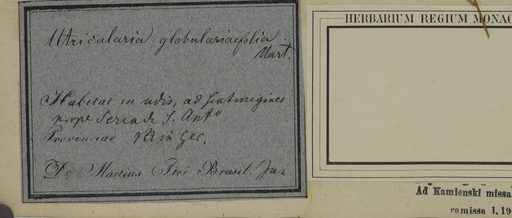 Utricularia globulariaefolia.
Mart.
Habitat in udis, ad scaturigines
prope Serra de S. Ant.º
Provinciae
D. Martius Iter Brasil.
HERBARIUM REGIUM MONAC
Ad Kamieński missa
remissa l. 19